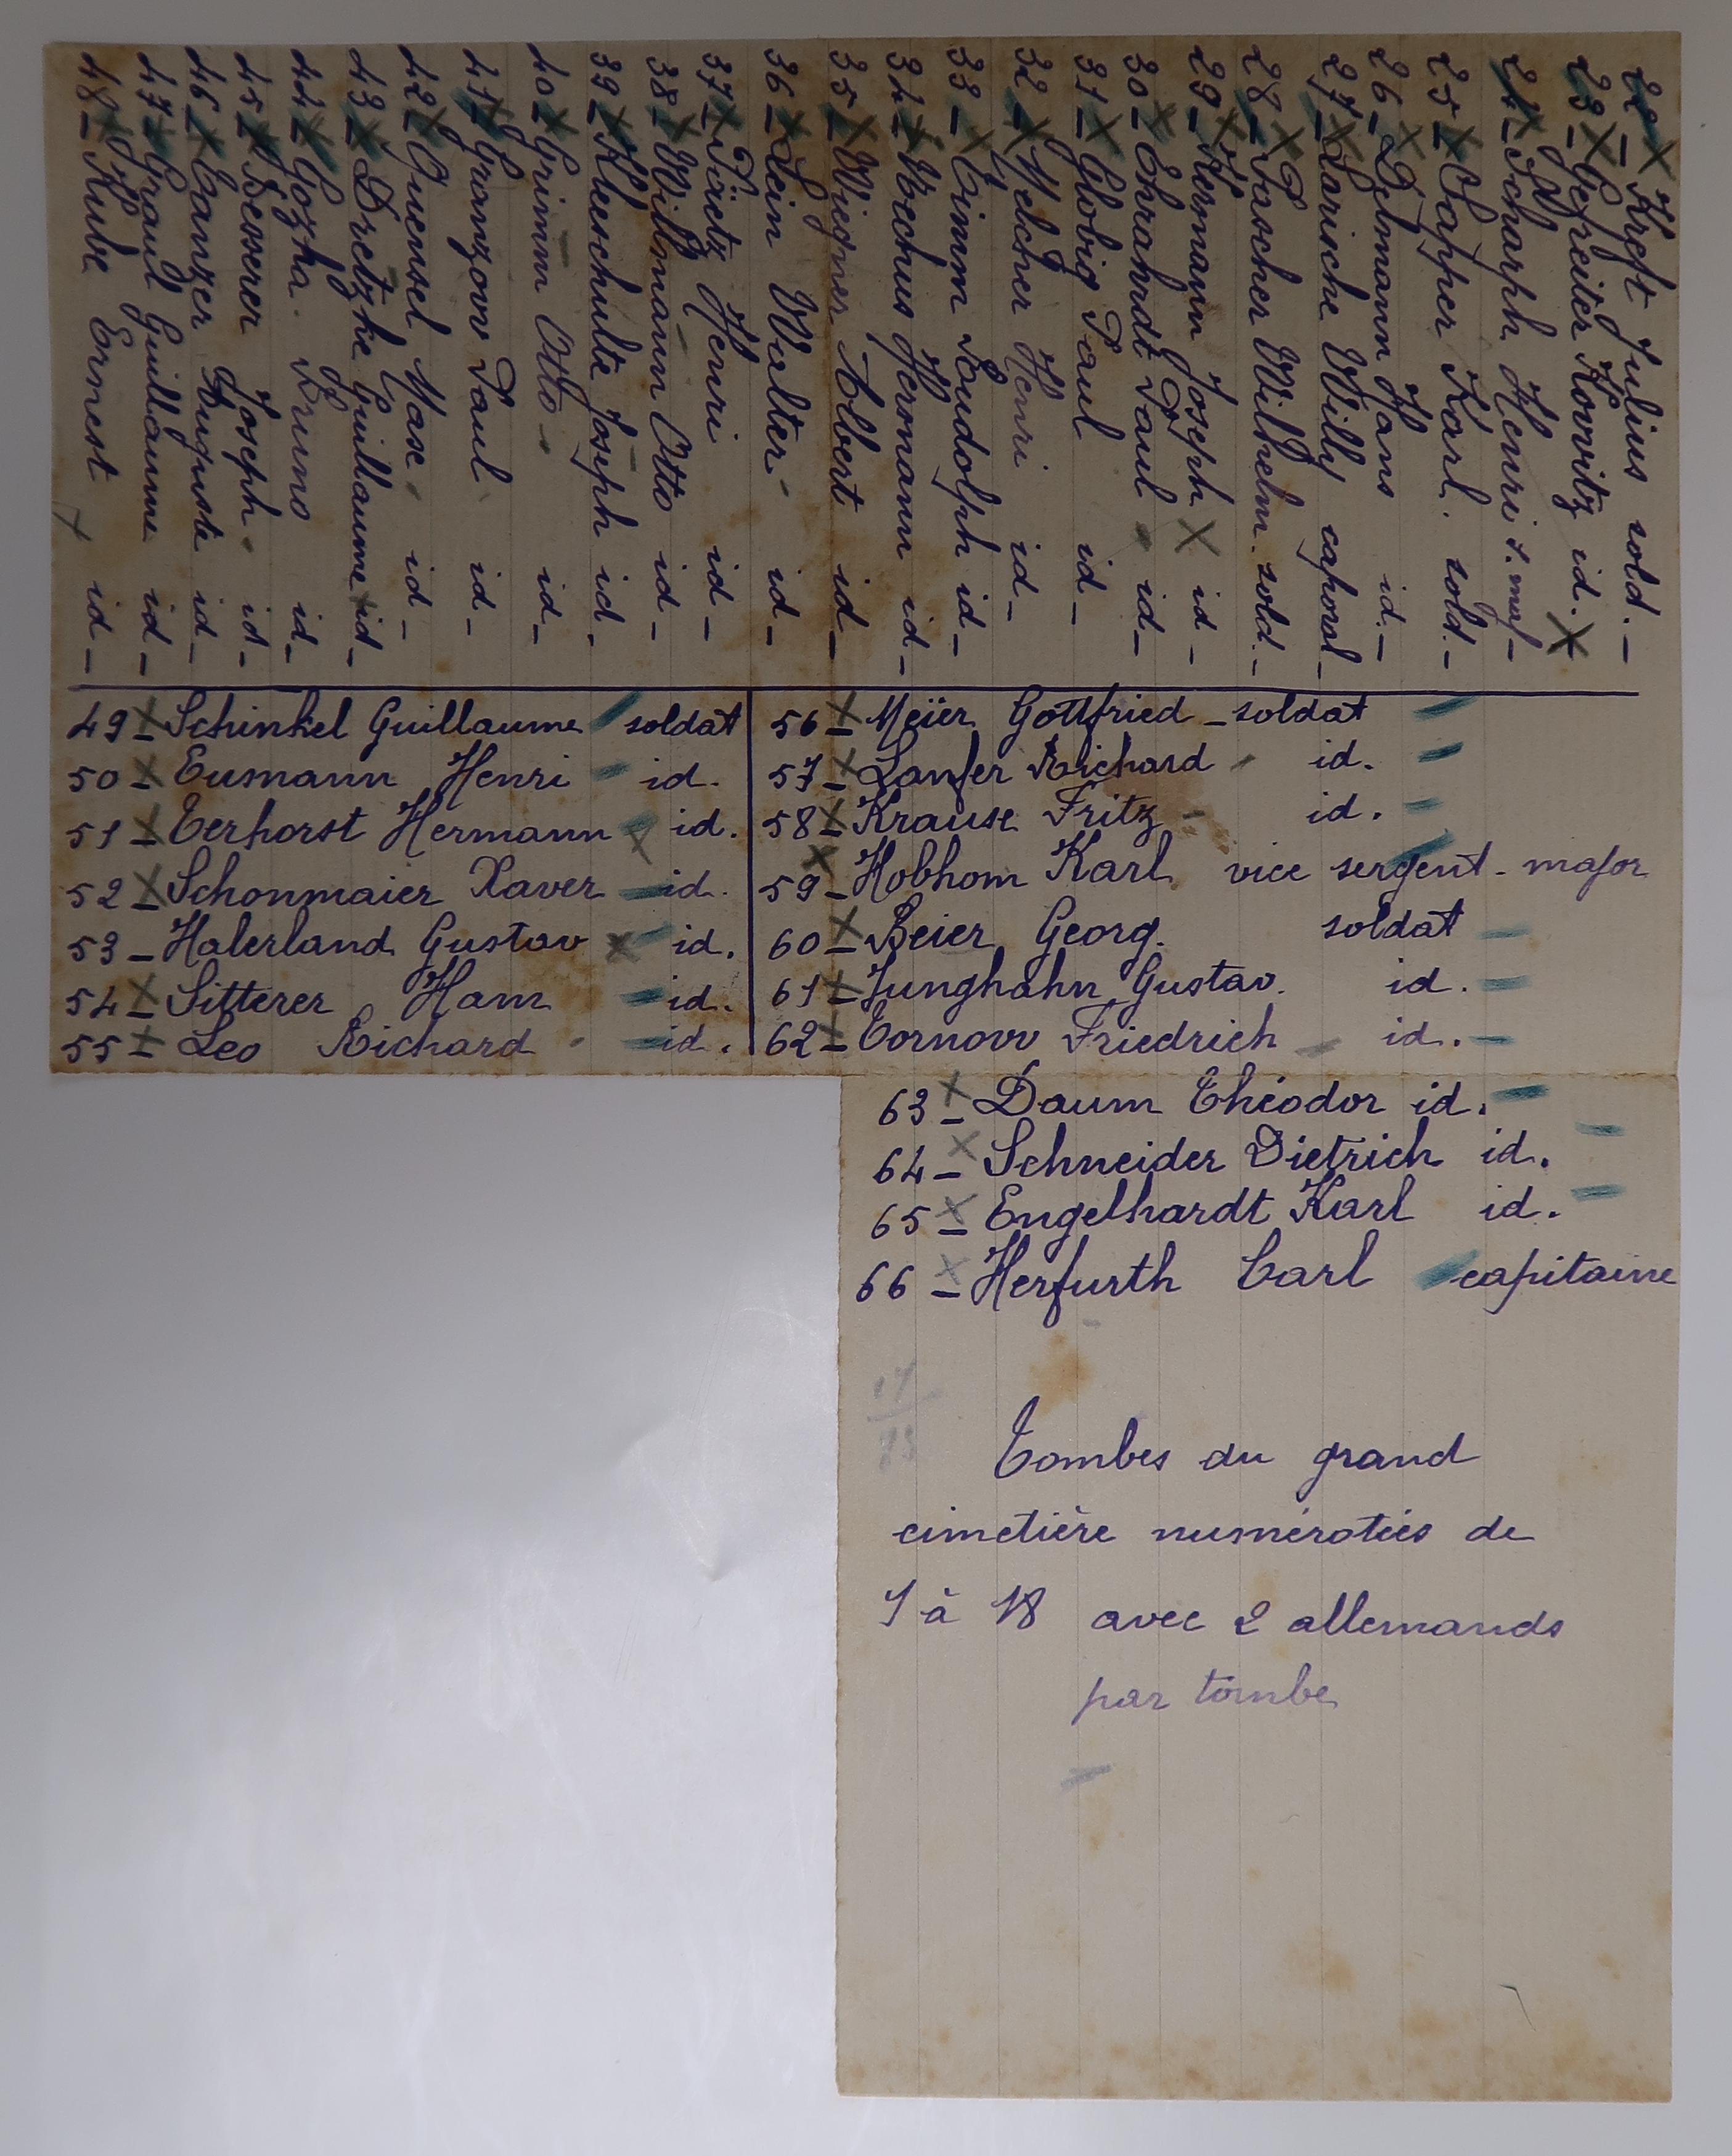 22 - Kreft Julius sold. -
23 - Gefreiter Kowitz id. X
24 - Scharph Henri s. maj -
25 - Capper Karl. sold. -
26 - Delmann Hans id. -
27 - Lorische Willy caporal -
28 - Pascher Wilhelm. sold. -
29 - Hermann Joseph X id -
30 - Ehrahrdt Paul id -
31 - Globig Paul id -
32 - Melcher Henri id -
33 - Cimm Loudolph id -
34 - Wechus Hermann id -
35 - Wiegner Albert id -
36 - Lein Walter - id -
37 - Tietz Henri id -
38 - Willmann Otto id -
39 - Kleeschulte Joseph id -
40 - Grimm Otto - id -
41 - Granzow Paul id -
42 - Quensel Mase id -
43 - Dretzke Guillaume id -
44 - Gozka. Bruno id -
45 - Besserer Joseph id -
46 - Canzer Auguste id -
47 - Graul Guillaume id -
48 - Kube Ernest id -
49 - Schinkel Guillaume soldat
50 - Eusmann Henri id.
51 - Eerhorst Hermann id.
52 - Schonmaier Xaver id.
53 - Halerland Gustav x id.
54 - Sitterer Ham id.
55 - Leo Richard id.
56 - Meïer Gottfried - soldat
57 - Lanfer Richard id.
58 - Krause Fritz - id.
59 - Hobhom Karl. vice sergent - major
60 - Beier Georg. soldat
61 - Junghahn Gustav. id.
62 - Cornow Friedrich id.
63 - Daum Théodor id.
64 - Schneider Dietrich id.
65 - Engelhardt Karl id.
66 - Herfurth Carl capitaine
Tombes du grand
cimetière numérotées de
1 à 18 avec 2 allemands
par tombe